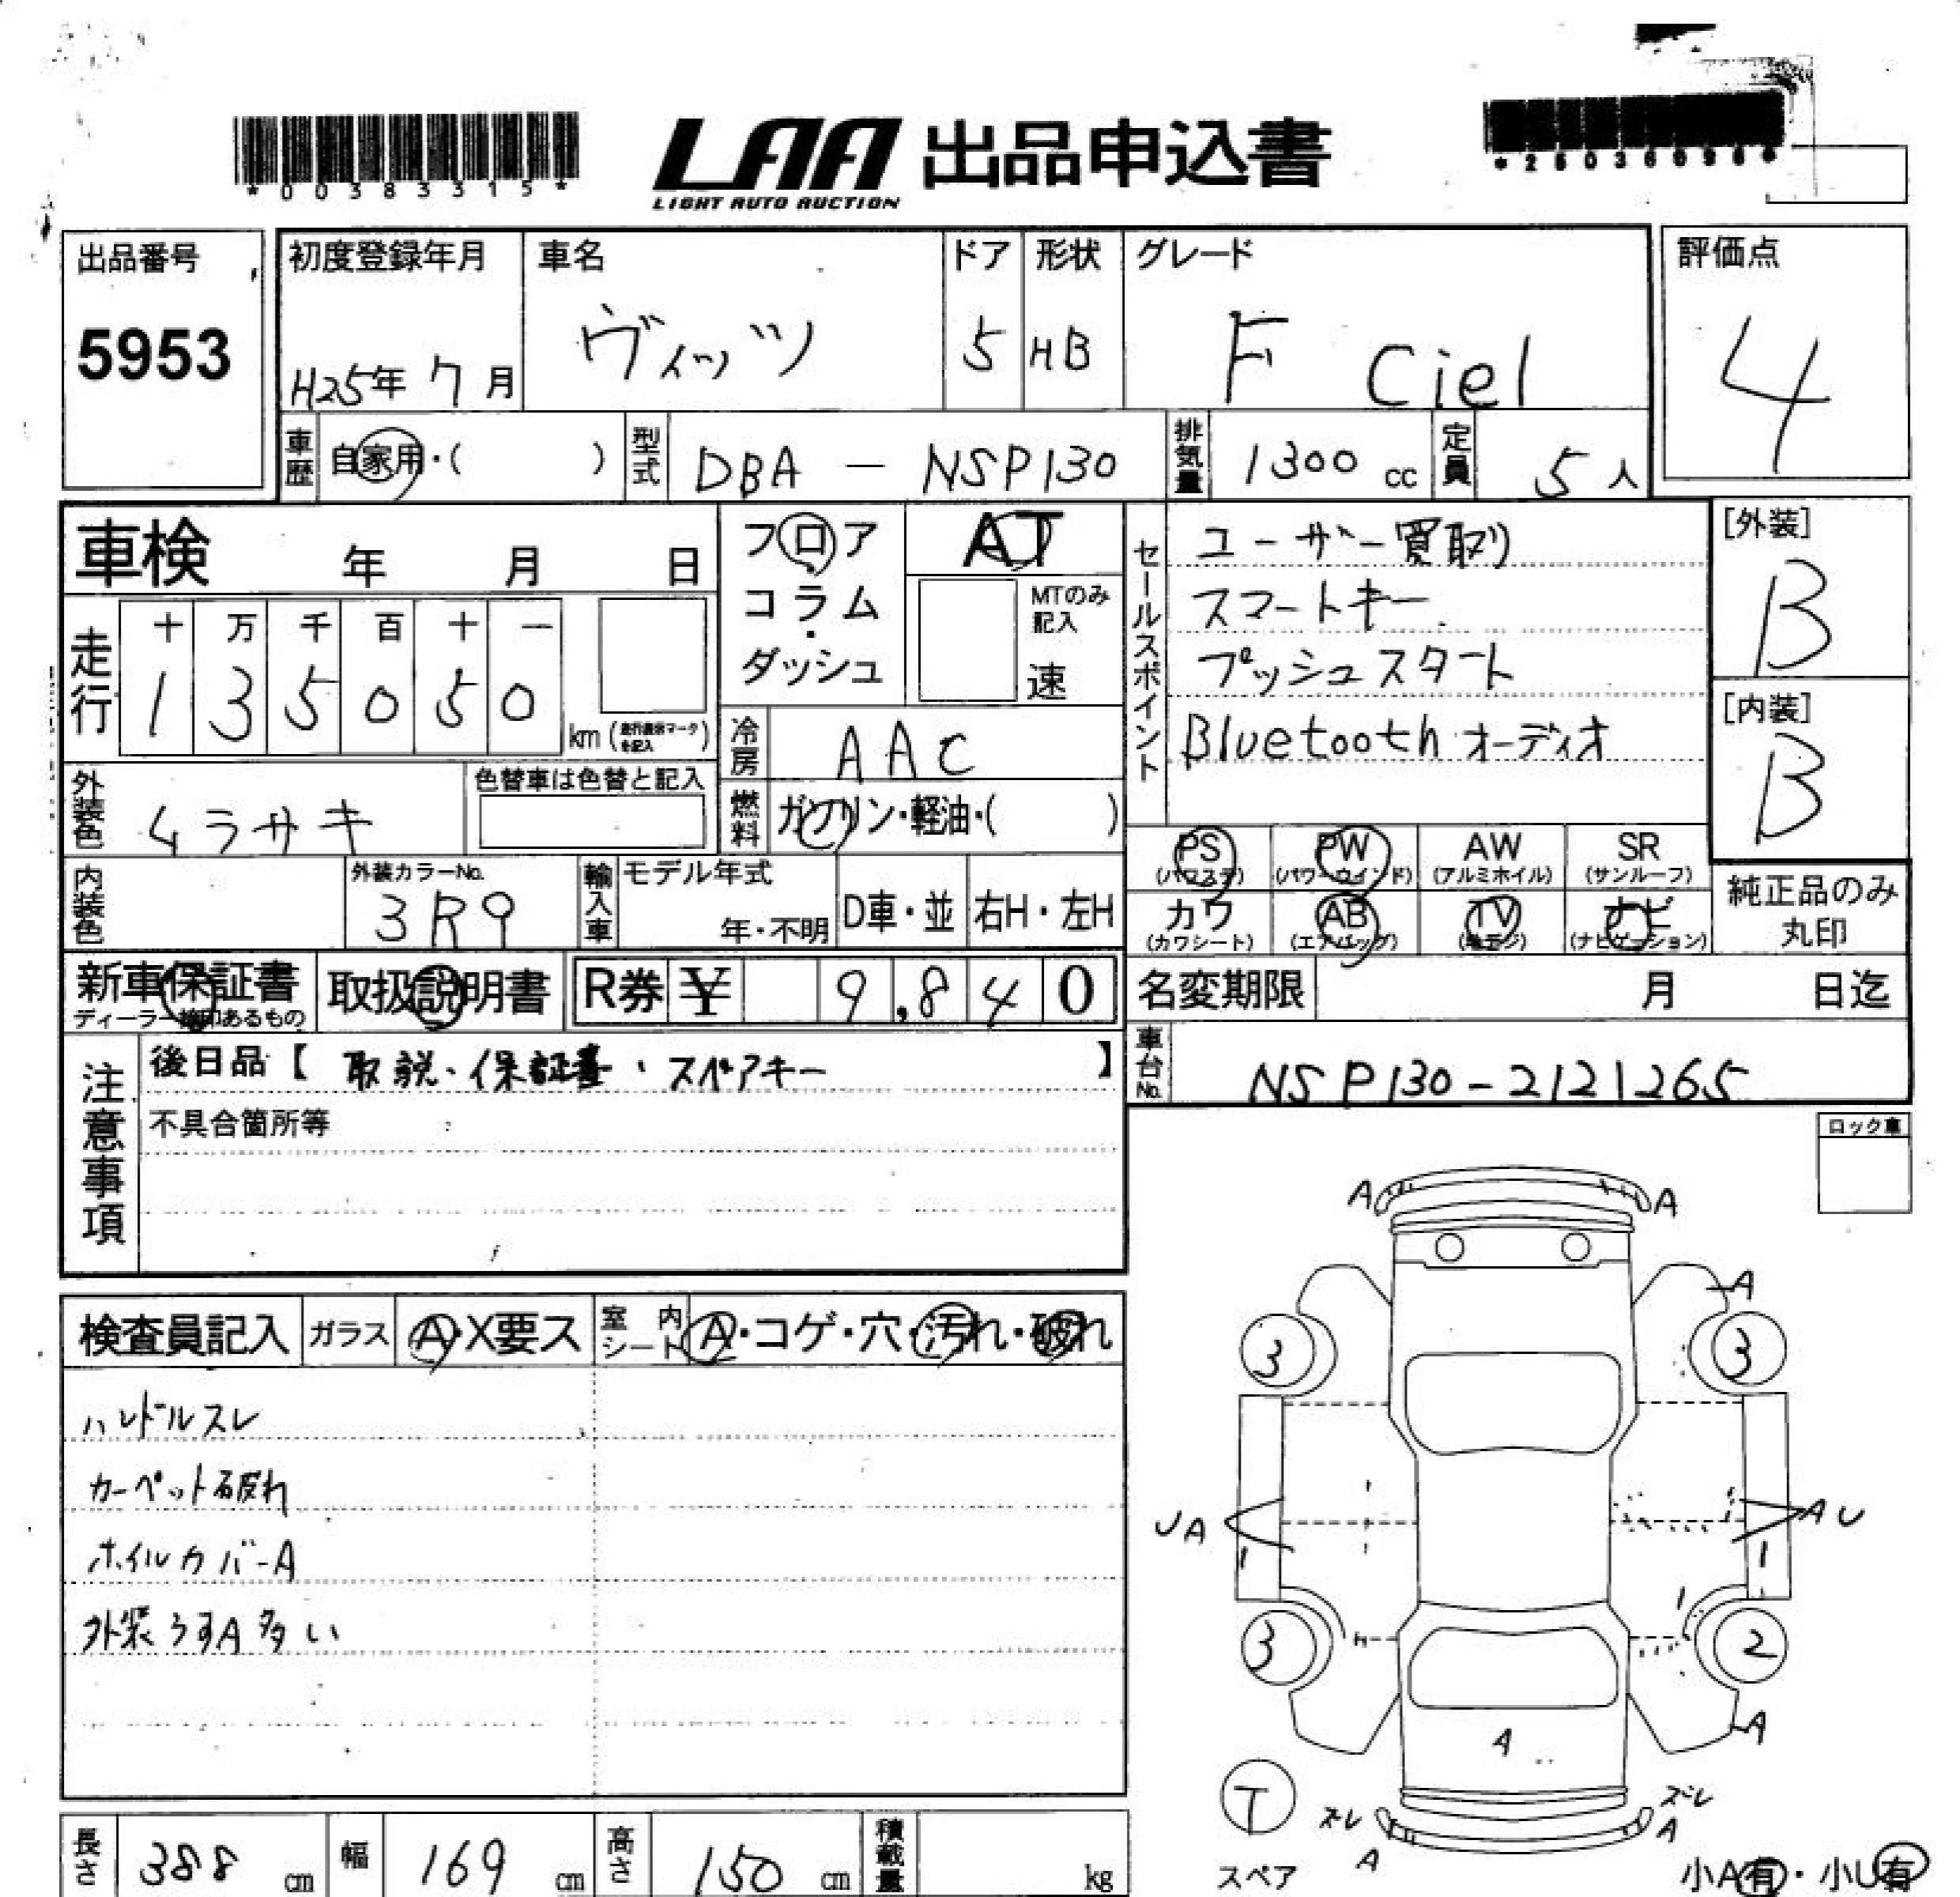 *00383315*
LAA 出品申込書
LIGHT AUTO AUCTION
出品番号
5953
初度登録年月
H25年 7月
車名
ヴィッツ
ドア
5
形状
HB
グレード
F Ciel
評価点
4
車歴 自家用・( )
型式 DBA - NSP130
排気量 1300 cc
定員 5人
車検 年 月 日
フロア
コラム
・
ダッシュ
AT
MTのみ
記入
速
セールスポイント
ユーザー買取り
スマートキー
プッシュスタート
Bluetoothオーディオ
[外装]
B
[内装]
B
走行
十 万 千 百 十 一
1 3 5 0 5 0
km
冷房 AAC
燃料 ガソリン・軽油・( )
外装色 ムラサキ
色替車は色替と記入
内装色
外装カラーNo.
3R9
輸入車
モデル年式
年・不明
D車・並
右H・左H
PS (パワステ)
PW (パワーウインド)
AW (アルミホイル)
SR (サンルーフ)
カワ (カワシート)
AB (エアバッグ)
TV
ナビ (ナビゲーション)
純正品のみ
丸印
新車保証書
ディーラー捺印あるもの
取扱説明書
R券 ¥ 9,840
名変期限 月 日迄
車台No. NSP130-2121265
注意事項
後日品【 取説・保証書・スペアキー 】
不具合箇所等
ロック車
検査員記入
ガラス A・X要ス
室内シート A・コゲ・穴・汚れ・破れ
ハンドルスレ
カーペット破れ
ホイルカバーA
外装うすA多い
A A
A
3 3
UA AU
3 2
A
A
T
スペア
ズレ ズレ
A A
小A有・小U有
長さ 388 cm
幅 169 cm
高さ 150 cm
積載量 kg